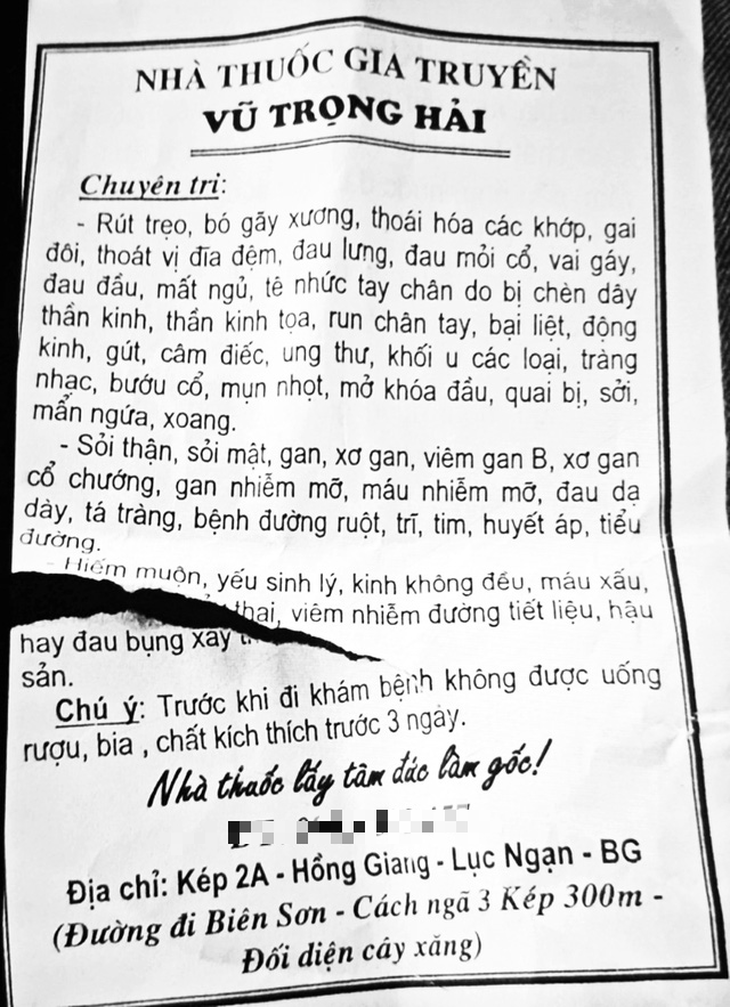 NHÀ THUỐC GIA TRUYỀN
VŨ TRỌNG HẢI
Chuyên trị:
- Rút trẹo, bó gãy xương, thoái hóa các khớp, gai
đôi, thoát vị đĩa đệm, đau lưng, đau mỏi cổ, vai gáy,
đau đầu, mất ngủ, tê nhức tay chân do bị chèn dây
thần kinh, thần kinh tọa, run chân tay, bại liệt, động
kinh, gút, câm điếc, ung thư, khối u các loại, tràng
nhạc, bướu cổ, mụn nhọt, mở khóa đầu, quai bị, sởi,
mẩn ngứa, xoang.
- Sỏi thận, sỏi mật, gan, xơ gan, viêm gan B, xơ gan
cổ chướng, gan nhiễm mỡ, máu nhiễm mỡ, đau dạ
dày, tá tràng, bệnh đường ruột, trĩ, tim, huyết áp, tiểu
đường.
- Hiếm muộn, yếu sinh lý, kinh không đều, máu xấu,
thai, viêm nhiễm đường tiết liệu, hậu
hay đau bụng xảy
sản.
Chú ý: Trước khi đi khám bệnh không được uống
rượu, bia , chất kích thích trước 3 ngày.
Nhà thuốc lấy tâm đức làm gốc!
Địa chỉ: Kép 2A - Hồng Giang - Lục Ngạn - BG
(Đường đi Biên Sơn - Cách ngã 3 Kép 300m -
Đối diện cây xăng)